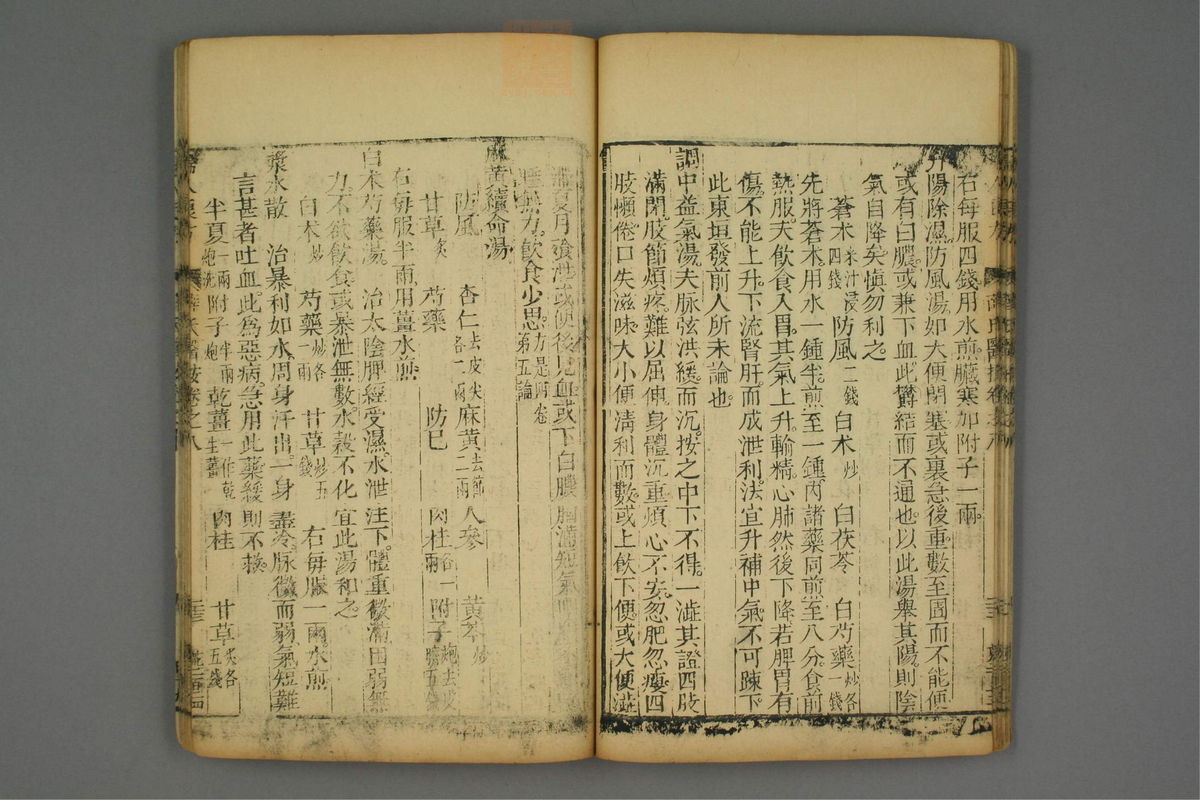 右每服四錢用水煎臟寒加附子一兩
升陽除濕防風湯如大便閉塞或裏急後重數至圊而不能便
或有白膿或兼下血此鬱結而不通也以此湯舉其陽則陰
氣自降矣慎勿利之
蒼术米汁浸四錢 防風二錢 白术炒 白茯苓 白芍藥炒各一錢
先將蒼术用水一鍾半煎至一鍾內諸藥同煎至八分食前
熱服夫飲食入胃其氣上升輸精心肺然後下降若脾胃有
傷不能上升下流腎肝而成泄利法宜升補中氣不可踈下
此東垣發前人所未論也
調中益氣湯夫脉弦洪緩而沉按之中下不得一澁其證四肢
滿閉肢節煩疼難以屈伸身體沉重煩心不安忽肥忽瘦四
肢懶倦口失滋味大小便淸利而數或上飲下便或大便澁
滯夏月飧泄或便後見血或下白膿胸滿短氣
無力飲食少思方是附卷第五論
麻黃續命湯
防風 杏仁去皮尖各一兩 麻黃去節二兩 人參 黃芩炒
甘草炙 芍藥 防巳 肉桂各一兩 附子炮去皮臍五錢
右每服半兩用薑水煎
白术芍藥湯 治太陰脾經受濕水泄注下體重微滿困弱無
力不欲飲食或暴泄無數水穀不化宜此湯和之
白术炒 芍藥炒各一兩 甘草炒五錢 右每服一兩水煎
漿水散 治暴利如水周身汗出一身盡冷脉微而弱氣短難
言甚者吐血此為惡病急用此藥緩則不捄
半夏一兩炮洗 附子半兩炮 乾薑一作乾生薑 肉桂 甘草炙各五錢